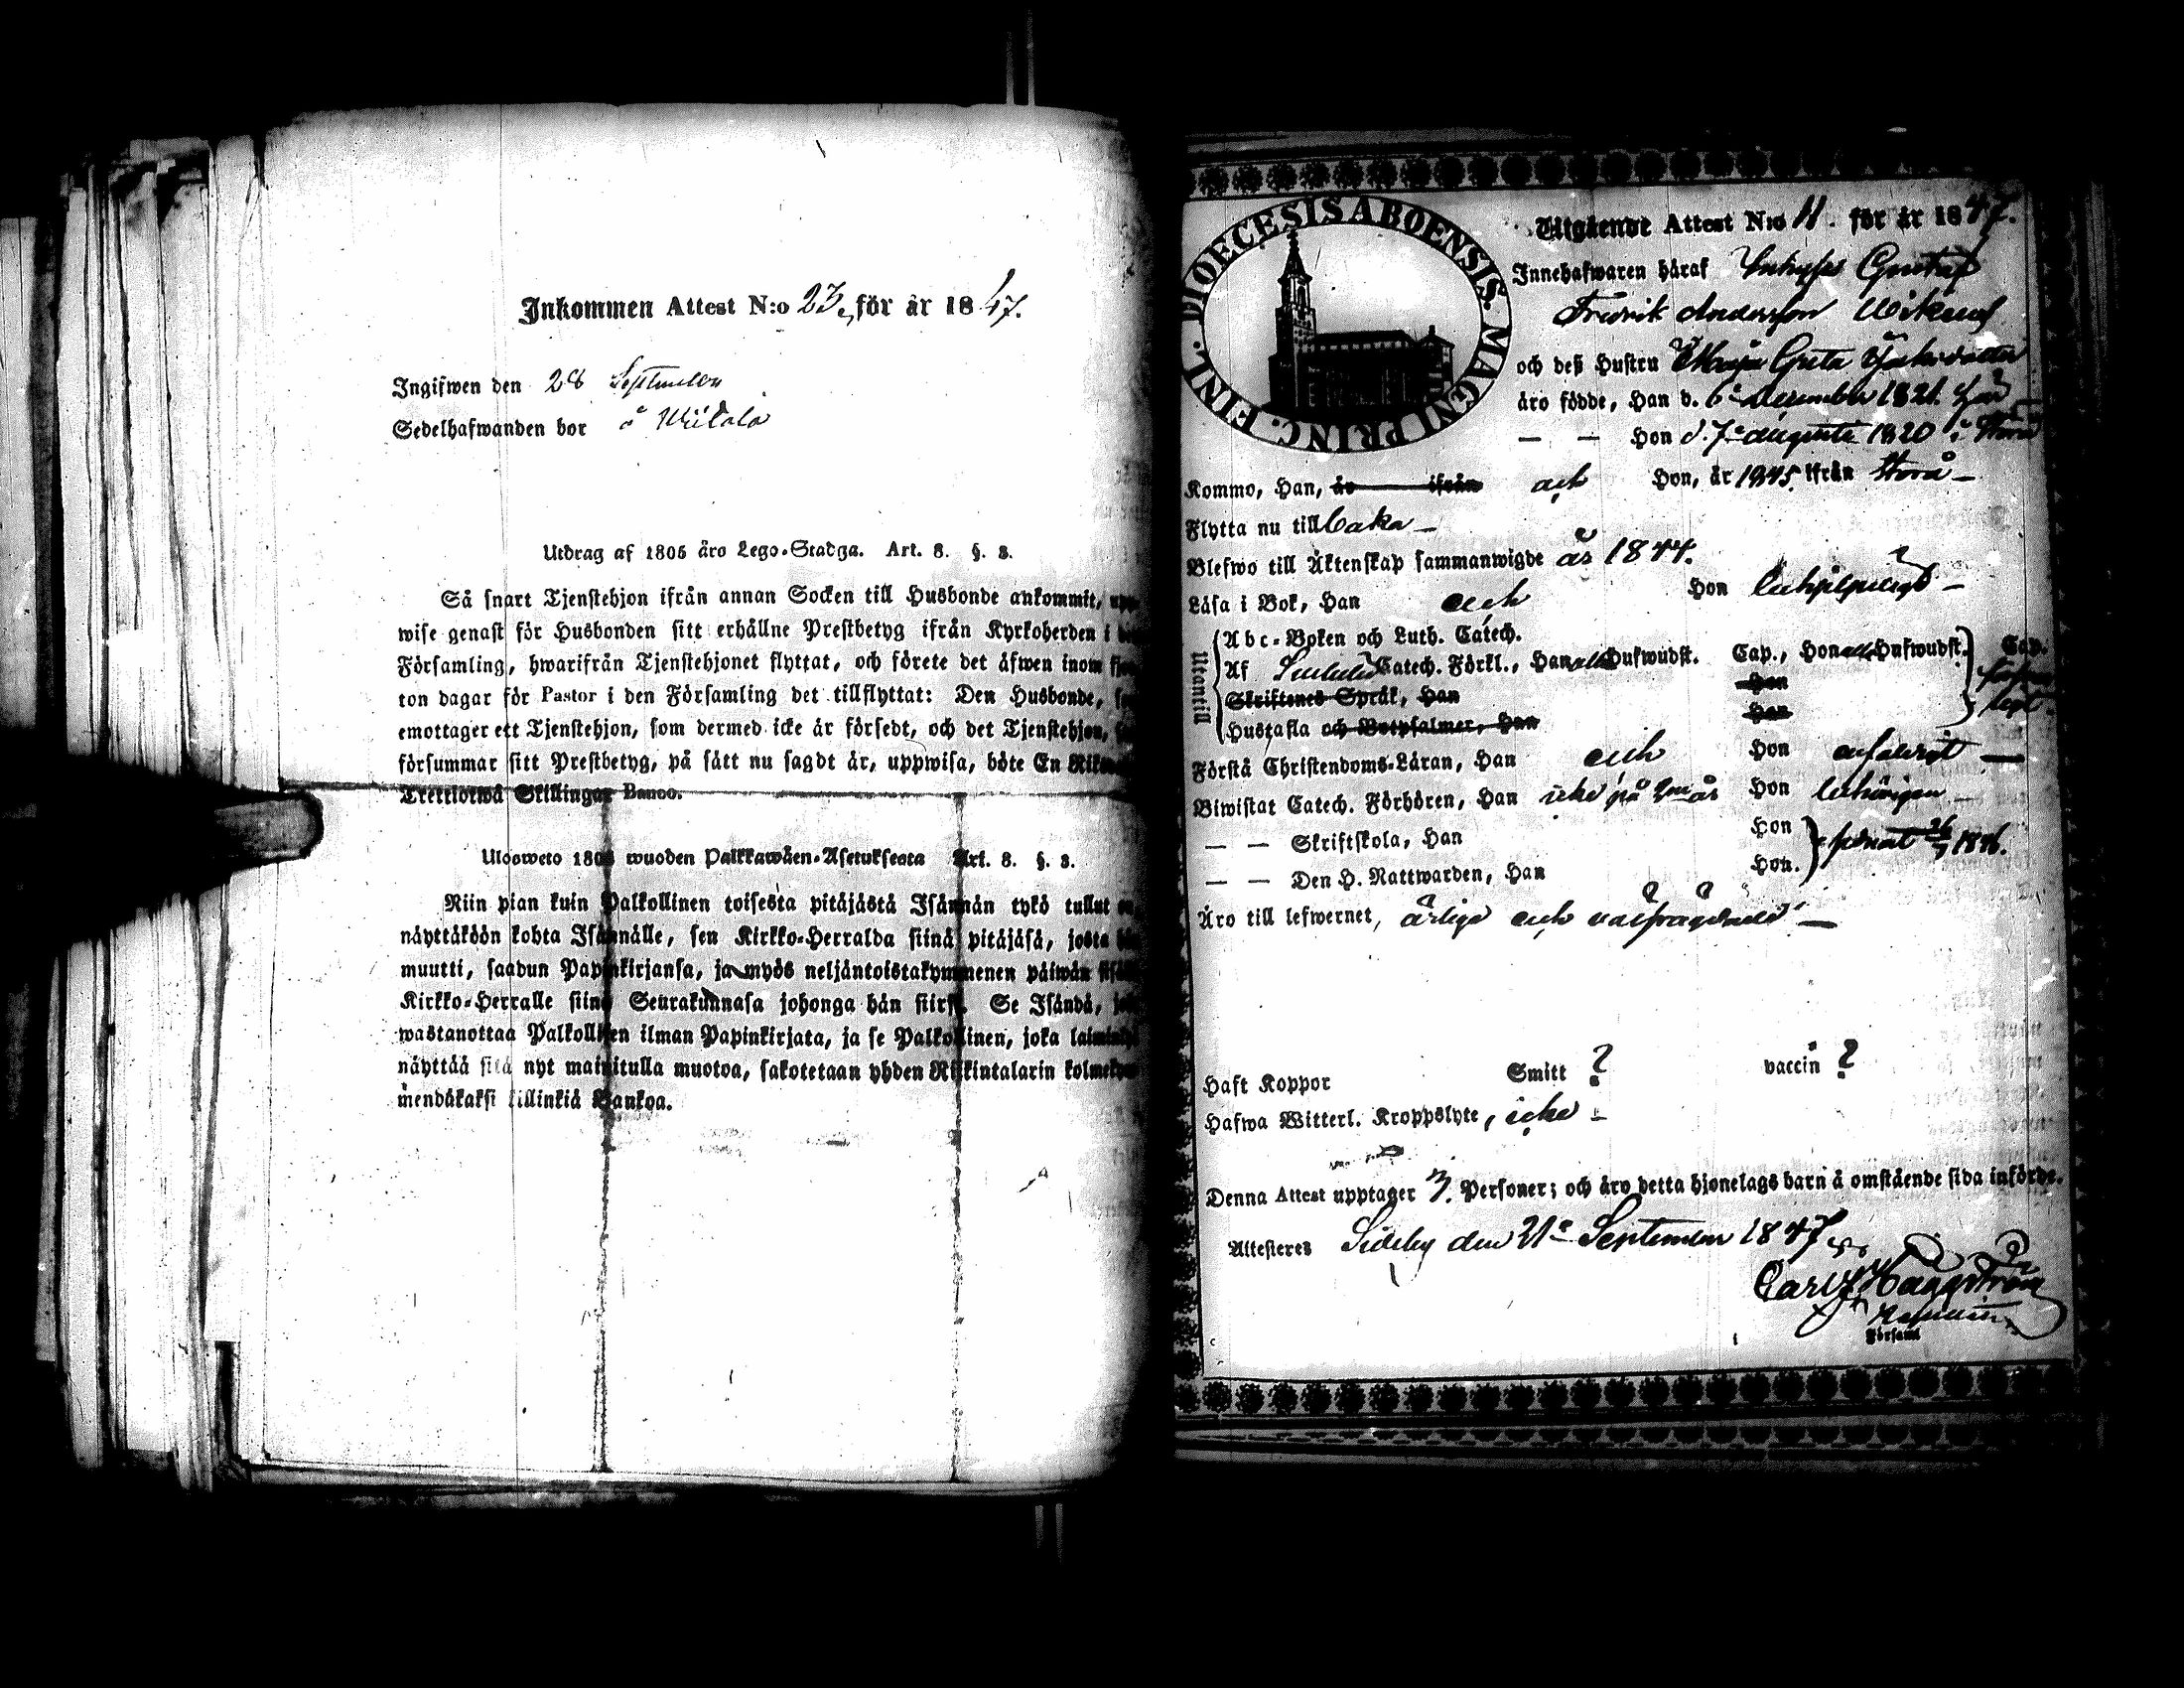 Inkommen Attest N:o 23, för år 1847.
Ingifwen den 28 September
Sedelhafwanden bor å
Utdrag af 1805 års Lego-Stadga. Art. 8. §. 3.
Så snart Tjenstehjon ifrån annan Socken till Husbonde ankommit,
wise genast för Husbonden sitt erhållne Prestbetyg ifrån Kyrkoherden i
Församling, hwarifrån Tjenstehjonet flyttat, och förete det äfwen inom
ton dagar för Pastor i den Församling det tillflyttat: Den Husbonde,
emottager ett Tjenstehjon, som dermed icke är försedt, och det Tjenstehjon,
försummar sitt Prestbetyg, på sätt nu sagdt är, uppwisa, böte En
Trettiotwå Skillingar Banco.
Ulosweto wuoden Palkkawäen-Asetuksesta Art. 8. §. 3.
Niin pian kuin Palkollinen toisesta pitäjästä Isännän tykö tullut on,
näyttäköön kohta Isännälle, sen Kirkko-Herralda siinä pitäjäsä, josta hän
muutti, saadun Papinkirjansa, ja myös neljäntoistakymmenen päiwän
Kirkko-Herralle siinä Seurakunnasa johonga hän siirsi. Se Isändä,
wastanottaa Palkollisen ilman Papinkirjata, ja se Palkollinen, joka
näyttää sitä nyt mainitulla muotoa, sakotetaan yhden Riikintalarin
mendäkaksi killinkiä Bankoa.
DIOECESIS ABOENSIS. MAGNI PRINC. FINL.
Utgående Attest N:o 11. för år 1847.
Innehafwaren häraf Gustaf
Fredrik Andersson
och deß Hustru Maja Greta
äro födde, Han d. 6 December 1821.
— — Hon d. 7 augusti 1820 i Storå
Kommo, Han, år ifrån och Hon, år 1845. ifrån Storå —
Flytta nu tillbaka —
Blefwo till Äktenskap sammanwigde år 1844.
Läsa i Bok, Han och Hon
Utantill
Abc-Boken och Luth. Catech.
Af Catech. Förkl., Han Hufwudst. Cap., Hon Hufwudst. Cap.
Skriftenes Språk, Han Hon
Hustafla och Botpsalmer, Han Hon
Förstå Christendoms-Läran, Han och Hon
Biwistat Catech. Förhören, Han icke på år Hon
— — Skriftskola, Han Hon
— — Den H. Nattwarden, Han Hon. 1846.
Äro till lefwernet, ärliga och välfrägdade —
Haft Koppor Smitt ? vaccin ?
Hafwa Witterl. Kroppslyte, icke —
Denna Attest upptager 3. Personer; och äro detta hjonelags barn å omstående sida införde.
Attesteres Sideby den 21 September 1847.
Carl Haggström
Församl